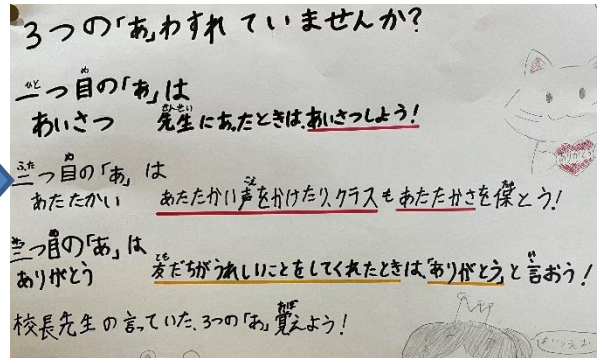 3つの「あ」わすれていませんか?
一つ目の「あ」は
あいさつ 先生にあったときは、あいさつしよう!
二つ目の「あ」は
あたたかい あたたかい声をかけたり、クラスもあたたかさを保とう!
三つ目の「あ」は
ありがとう 友だちがうれしいことをしてくれたときは、「ありがとう」と言おう!
校長先生の言っていた、3つの「あ」覚えよう!
ありがとう